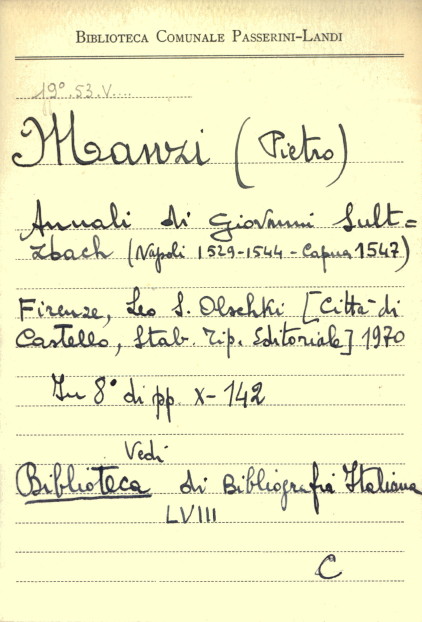 BIBLIOTECA COMUNALE PASSERINI-LANDI
19°.53.V....
Manzi (Pietro)
Annali di Giovanni Sult=
zbach (Napoli 1529-1544 - Capua 1547)
Firenze, Leo S. Olschki [Città di
Castello, Stab. Tip. Editoriale] 1970
In 8° di pp. X-142
Vedi
Biblioteca di Bibliografia Italiana
LVIII
C